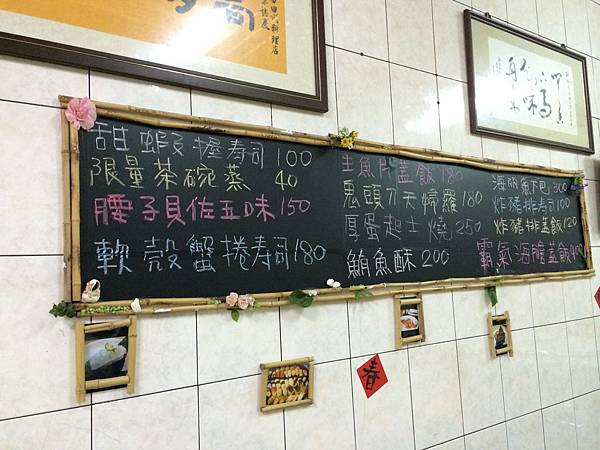 甜蝦握壽司 100
限量茶碗蒸 40
腰子貝佐五味 150
軟殼蟹捲壽司 180
生魚片蓋飯 180
鬼頭刀天婦羅 180
厚蛋起士燒 250
鮪魚酥 200
海鱺魚下巴 300
炸豬排壽司 100
炸豬排蓋飯 120
霸氣海膽蓋飯
春